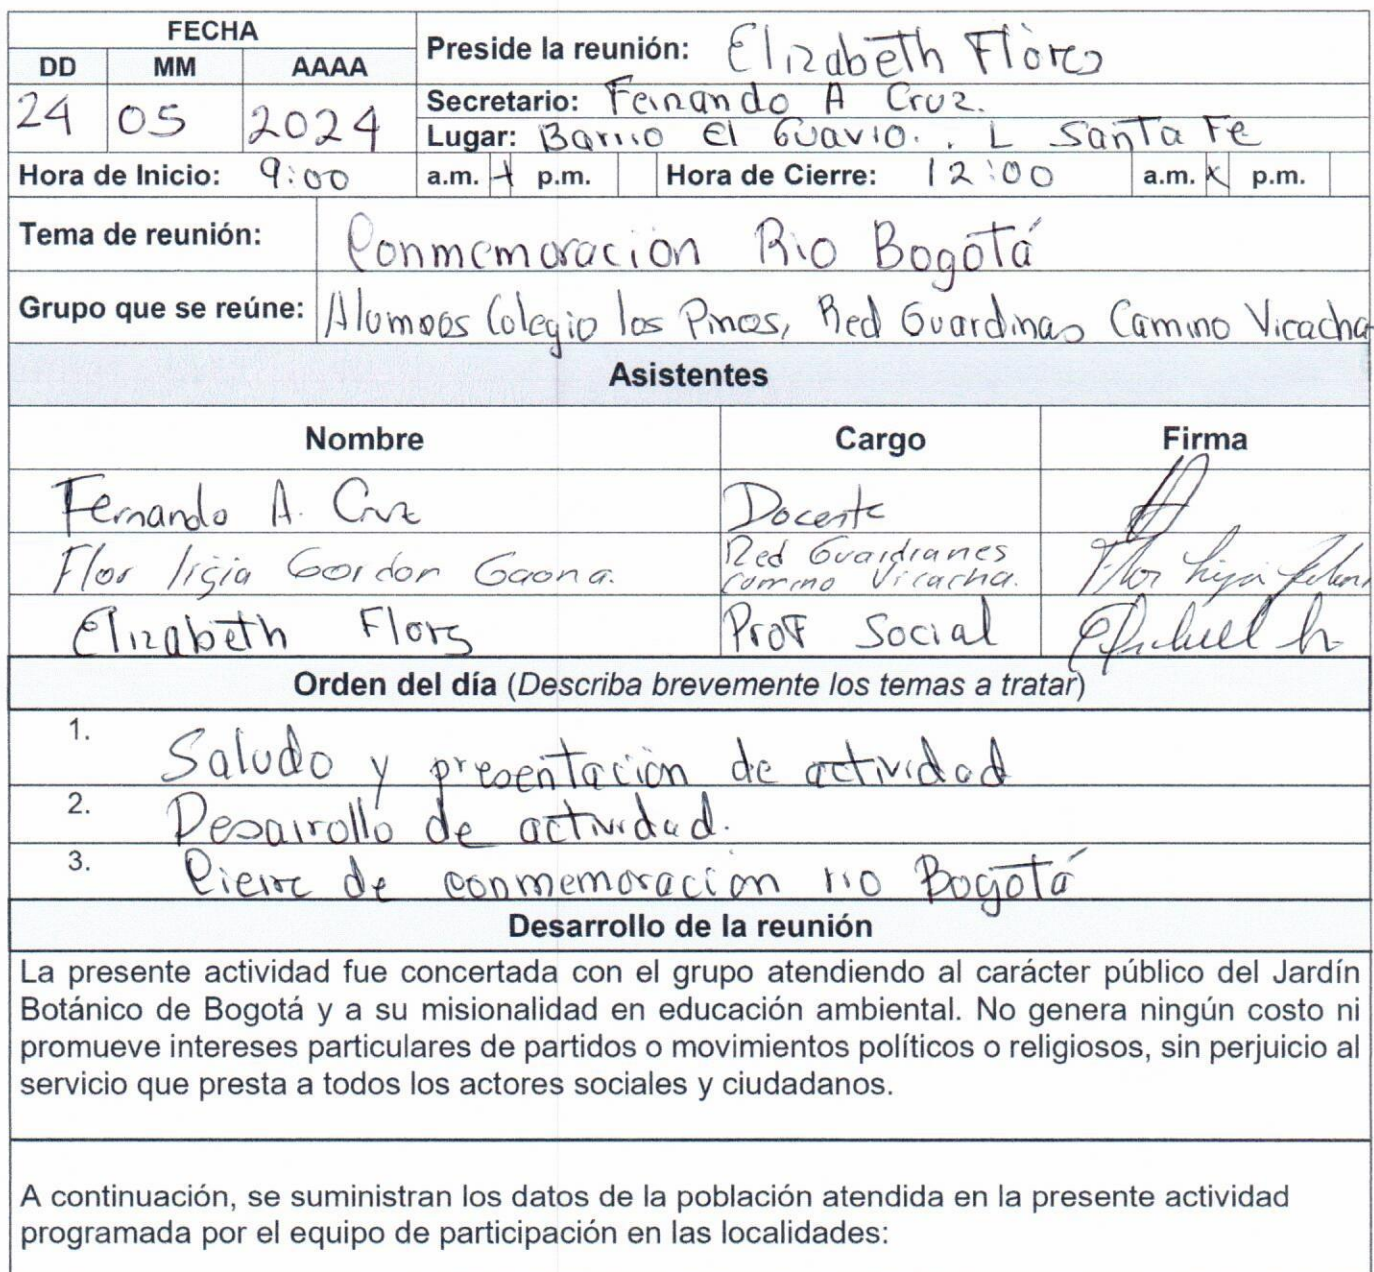 FECHA
DD MM AAAA
24 05 2024
Preside la reunión: Elizabeth Flores
Secretario: Fernando A Cruz.
Lugar: Barrio El Guavio. . L Santa Fe
Hora de Inicio: 9:00 a.m. + p.m. Hora de Cierre: 12:00 a.m. x p.m.
Tema de reunión: Conmemoración Rio Bogotá
Grupo que se reúne: Alumnos Colegio los Pinos, Red Guardinas Camino Vicacha
Asistentes
Nombre Cargo Firma
Fernando A. Cruz Docente
Flor ligia Gordon Gaona. Red Guardianes Camino Vicacha. Flor Ligia
Elizabeth Flors Prof Social
Orden del día (Describa brevemente los temas a tratar)
1. Saludo y presentación de actividad
2. Desarrollo de actividad.
3. Cierre de conmemoración rio Bogotá
Desarrollo de la reunión
La presente actividad fue concertada con el grupo atendiendo al carácter público del Jardín
Botánico de Bogotá y a su misionalidad en educación ambiental. No genera ningún costo ni
promueve intereses particulares de partidos o movimientos políticos o religiosos, sin perjuicio al
servicio que presta a todos los actores sociales y ciudadanos.
A continuación, se suministran los datos de la población atendida en la presente actividad
programada por el equipo de participación en las localidades: